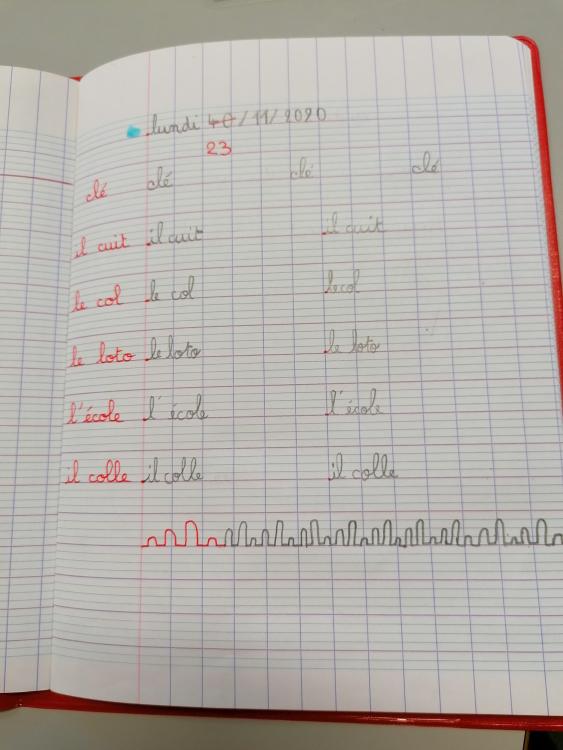 lundi /11/2020
23
clé clé clé clé
il cuit il cuit il cuit
le col le col le col
le loto le loto le loto
l'école l'école l'école
il colle il colle il colle